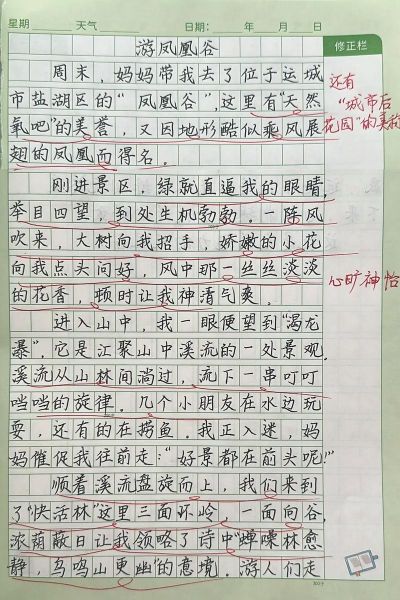 星期 天气 日期: 年 月 日
修正栏
游凤凰谷
周末，妈妈带我去了位于运城
市盐湖区的“凤凰谷”，这里有“天然
氧吧”的美誉，又因地形酷似乘风展
翅的凤凰而得名。
还有
“城市后
花园”的美称
刚进景区，绿就直逼我的眼睛，
举目四望，到处生机勃勃。一阵风
吹来，大树向我招手，娇嫩的小花
向我点头问好，风中那一丝丝淡淡
的花香，顿时让我神清气爽。
心旷神怡
进入山中，我一眼便望到“渴龙
瀑”，它是汇聚山中溪流的一处景观。
溪流从山林间淌过，流下一串叮叮
当当的旋律。几个小朋友在水边玩
耍，还有的在捞鱼。我正入迷，妈
妈催促我往前走：“好景都在前头呢！”
顺着溪流盘旋而上，我们来到
了“快活林”这里三面环岭，一面向谷，
浓荫蔽日让我领略了诗中“蝉噪林愈
静，鸟鸣山更幽”的意境。游人们走